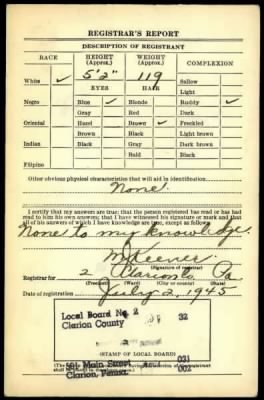 REGISTRAR'S REPORT
DESCRIPTION OF REGISTRANT
RACE HEIGHT (Approx.) WEIGHT (Approx.) COMPLEXION
White ✓ 5'2" 119 Sallow
EYES HAIR Light
Negro Blue ✓ Blonde Ruddy ✓
Gray Red Dark
Oriental Hazel Brown ✓ Freckled
Brown Black Light brown
Indian Black Gray Dark brown
Bald Black
Filipino
Other obvious physical characteristics that will aid in identification
None.
I certify that my answers are true; that the person registered has read or has
had read to him his own answers; that I have witnessed his signature or mark and that
all of his answers of which I have knowledge are true, except as follows:
None to my knowledge.
Keener
(Signature of registrar)
Registrar for 2 Clarion Co. Pa
(Precinct) (Ward) (City or county) (State)
Date of registration July 2, 1945
Local Board No. 2 32
Clarion County
031
Main Street 002
Clarion, Penna.
(STAMP OF LOCAL BOARD)